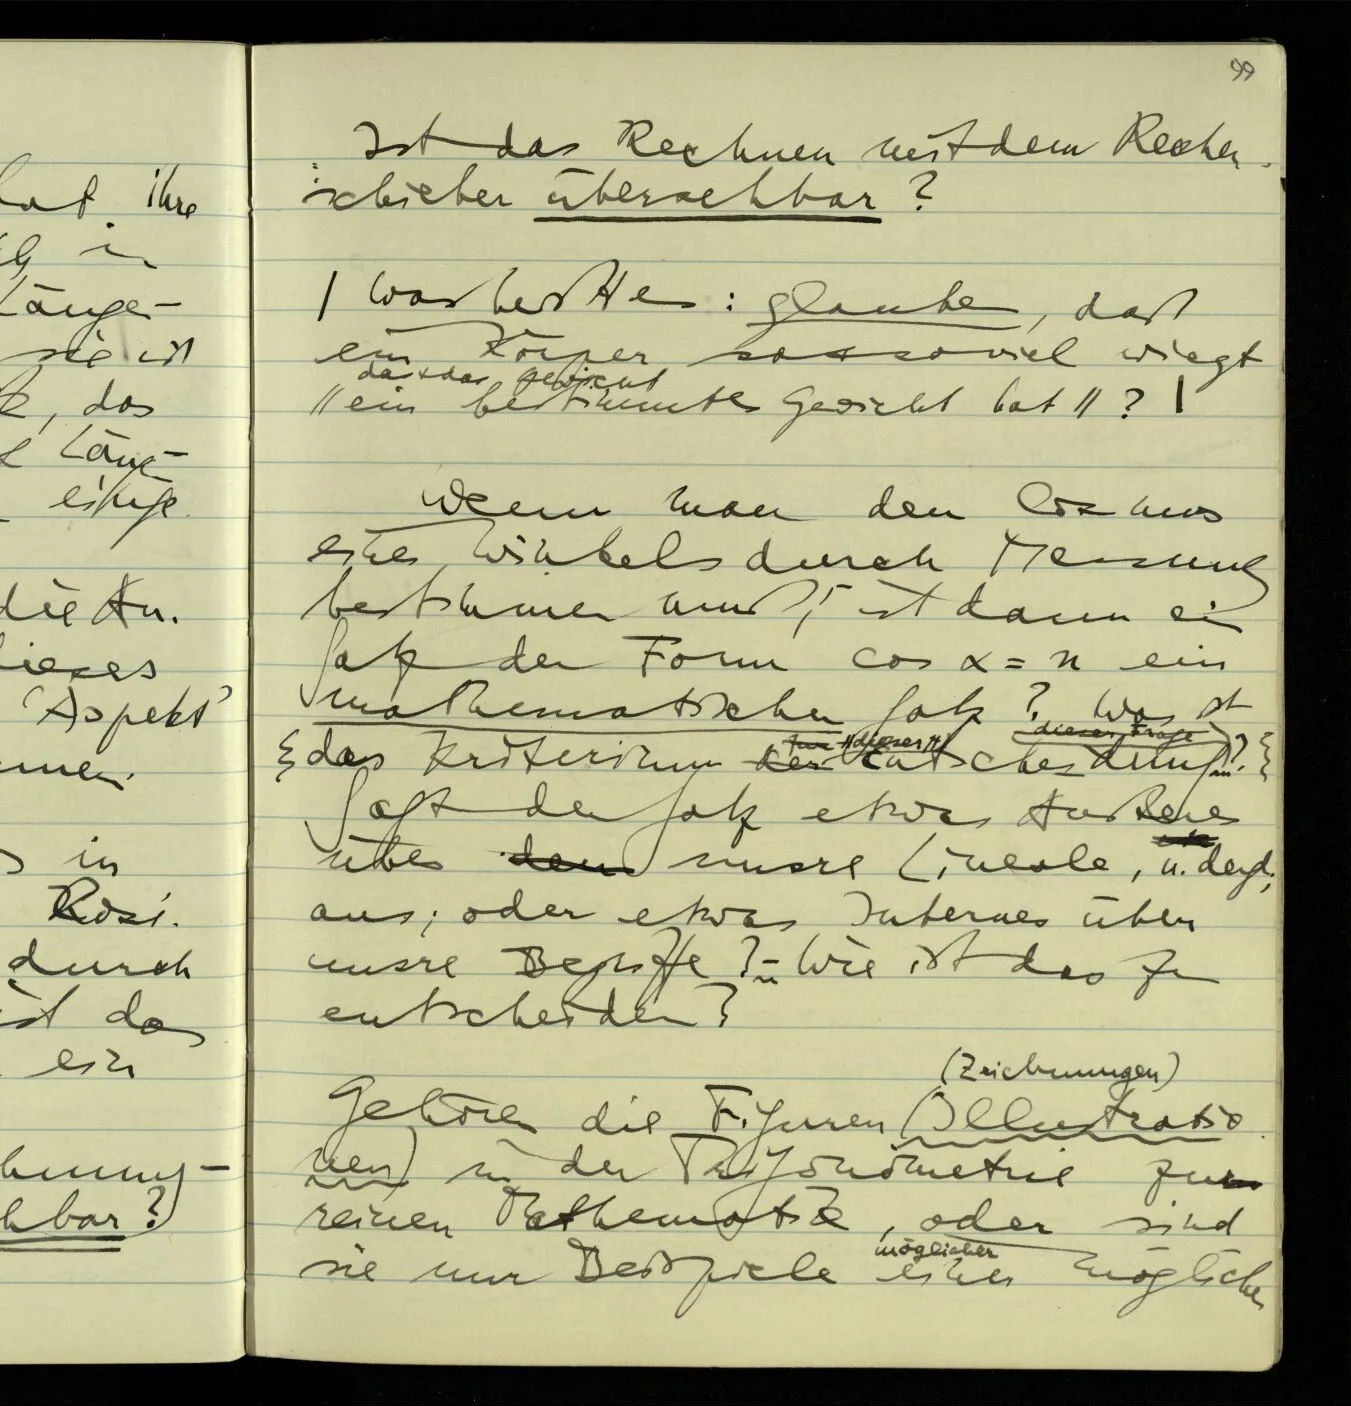 hat ihre
in
Länge-
sie ist
, das
Läng-
einige
die An.
dieses
'Aspekt'
in
durch
ist das
ein
hbar?)
99
Ist das Rechnen mit dem Rechen-
schieber übersehbar?
| Was heißt es: glauben, daß
ein Körper soundsoviel wiegt
das & das Gewicht
// ein bestimmtes Gewicht hat // ? |
Wenn man den Cosinus
eines Winkels durch Messung
bestimmen muß, ist dann ein
Satz der Form cos α = n ein
mathematischer Satz? Was ist
dieser Frage
für // dieser //
{das Kriterium der Entscheidung?}
Sagt der Satz etwas Äußeres
über den unsre Lineale, u. dergl.,
aus; oder etwas Internes über
unsre Begriffe? – Wie ist das zu
entscheiden?
(Zeichnungen)
Gehören die Figuren (Illustratio-
nen) in der Trigonometrie zur
reinen Mathematik, oder sind
möglicher
sie nur Beispiele einer möglichen